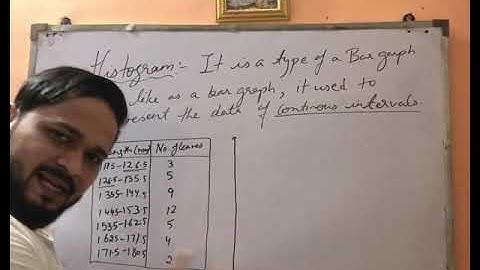 Histogram:- It is a type of a Bar graph
like as a bar graph, it used to
present the data of continous intervals.
(mm) No. of leaves
117.5-126.5 3
126.5-135.5 5
135.5-144.5 9
144.5-153.5 12
153.5-162.5 5
162.5-171.5 4
171.5-180.5 2